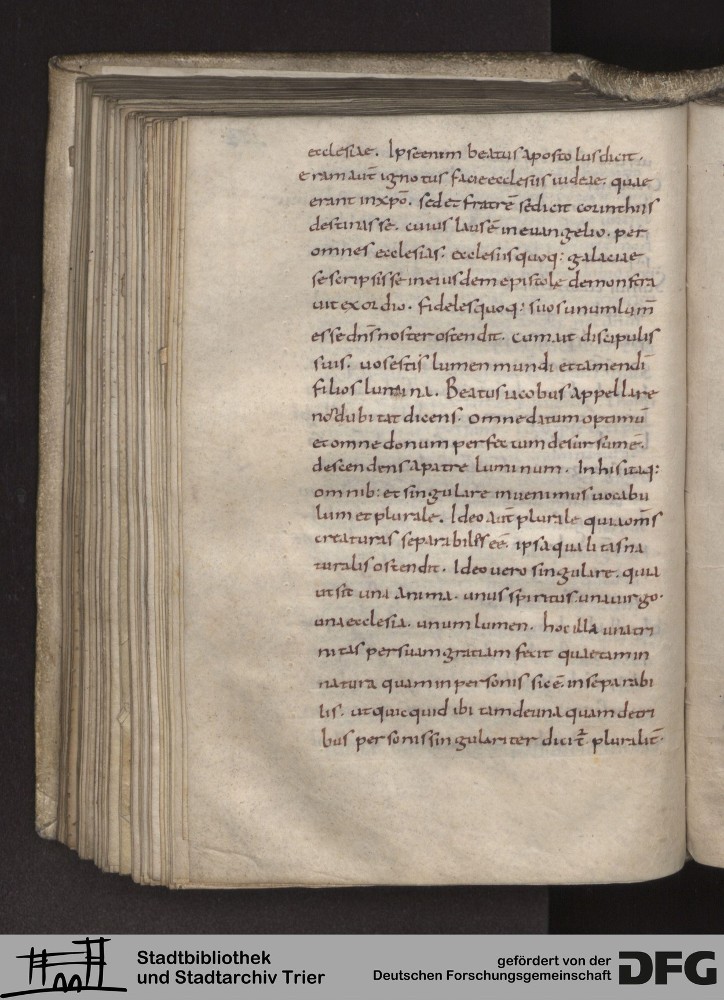 ecclesiae. Ipse enim beatus apostolus dicit.
eram aut̄ ignotus facie ecclesiis iudeae. quae
erant in xp̄o. sed et fratrē se dicit corinthiis
destinasse. cuius laus ē in euangelio. per
omnes ecclesias: ecclesiis quoq: galaciae
se scripsisse in eiusdem epistole demonstra
uit exordio. fideles quoq: suos unum lum̄
esse dn̄s noster ostendit. cum ait discipulis
suis. uos estis lumen mundi et tamen di
filios lumina. Beatus iacobus appellare
non dubitat dicens. omne datum optimū
et omne donum perfectum desursum ē.
descendens a patre luminum. In his itaq:
omnib: et singulare inuenimus uocabu
lum et plurale. Ideo aut̄ plurale quia om̄s
creaturas separabiles eē. ipsa qualitas na
turalis ostendit. Ideo uero singulare. quia
ut sit una anima. unus spiritus. una uirgo.
una ecclesia. unum lumen. hoc illa una tri
nitas per suam gratiam fecit quae tam in
natura quam in personis sic ē. inseparabi
lis. ut quicquid ibi tam de una quam de tri
bus personis singulariter dicit̄ pluralit̄.
Stadtbibliothek
und Stadtarchiv Trier
gefördert von der
Deutschen Forschungsgemeinschaft
DFG